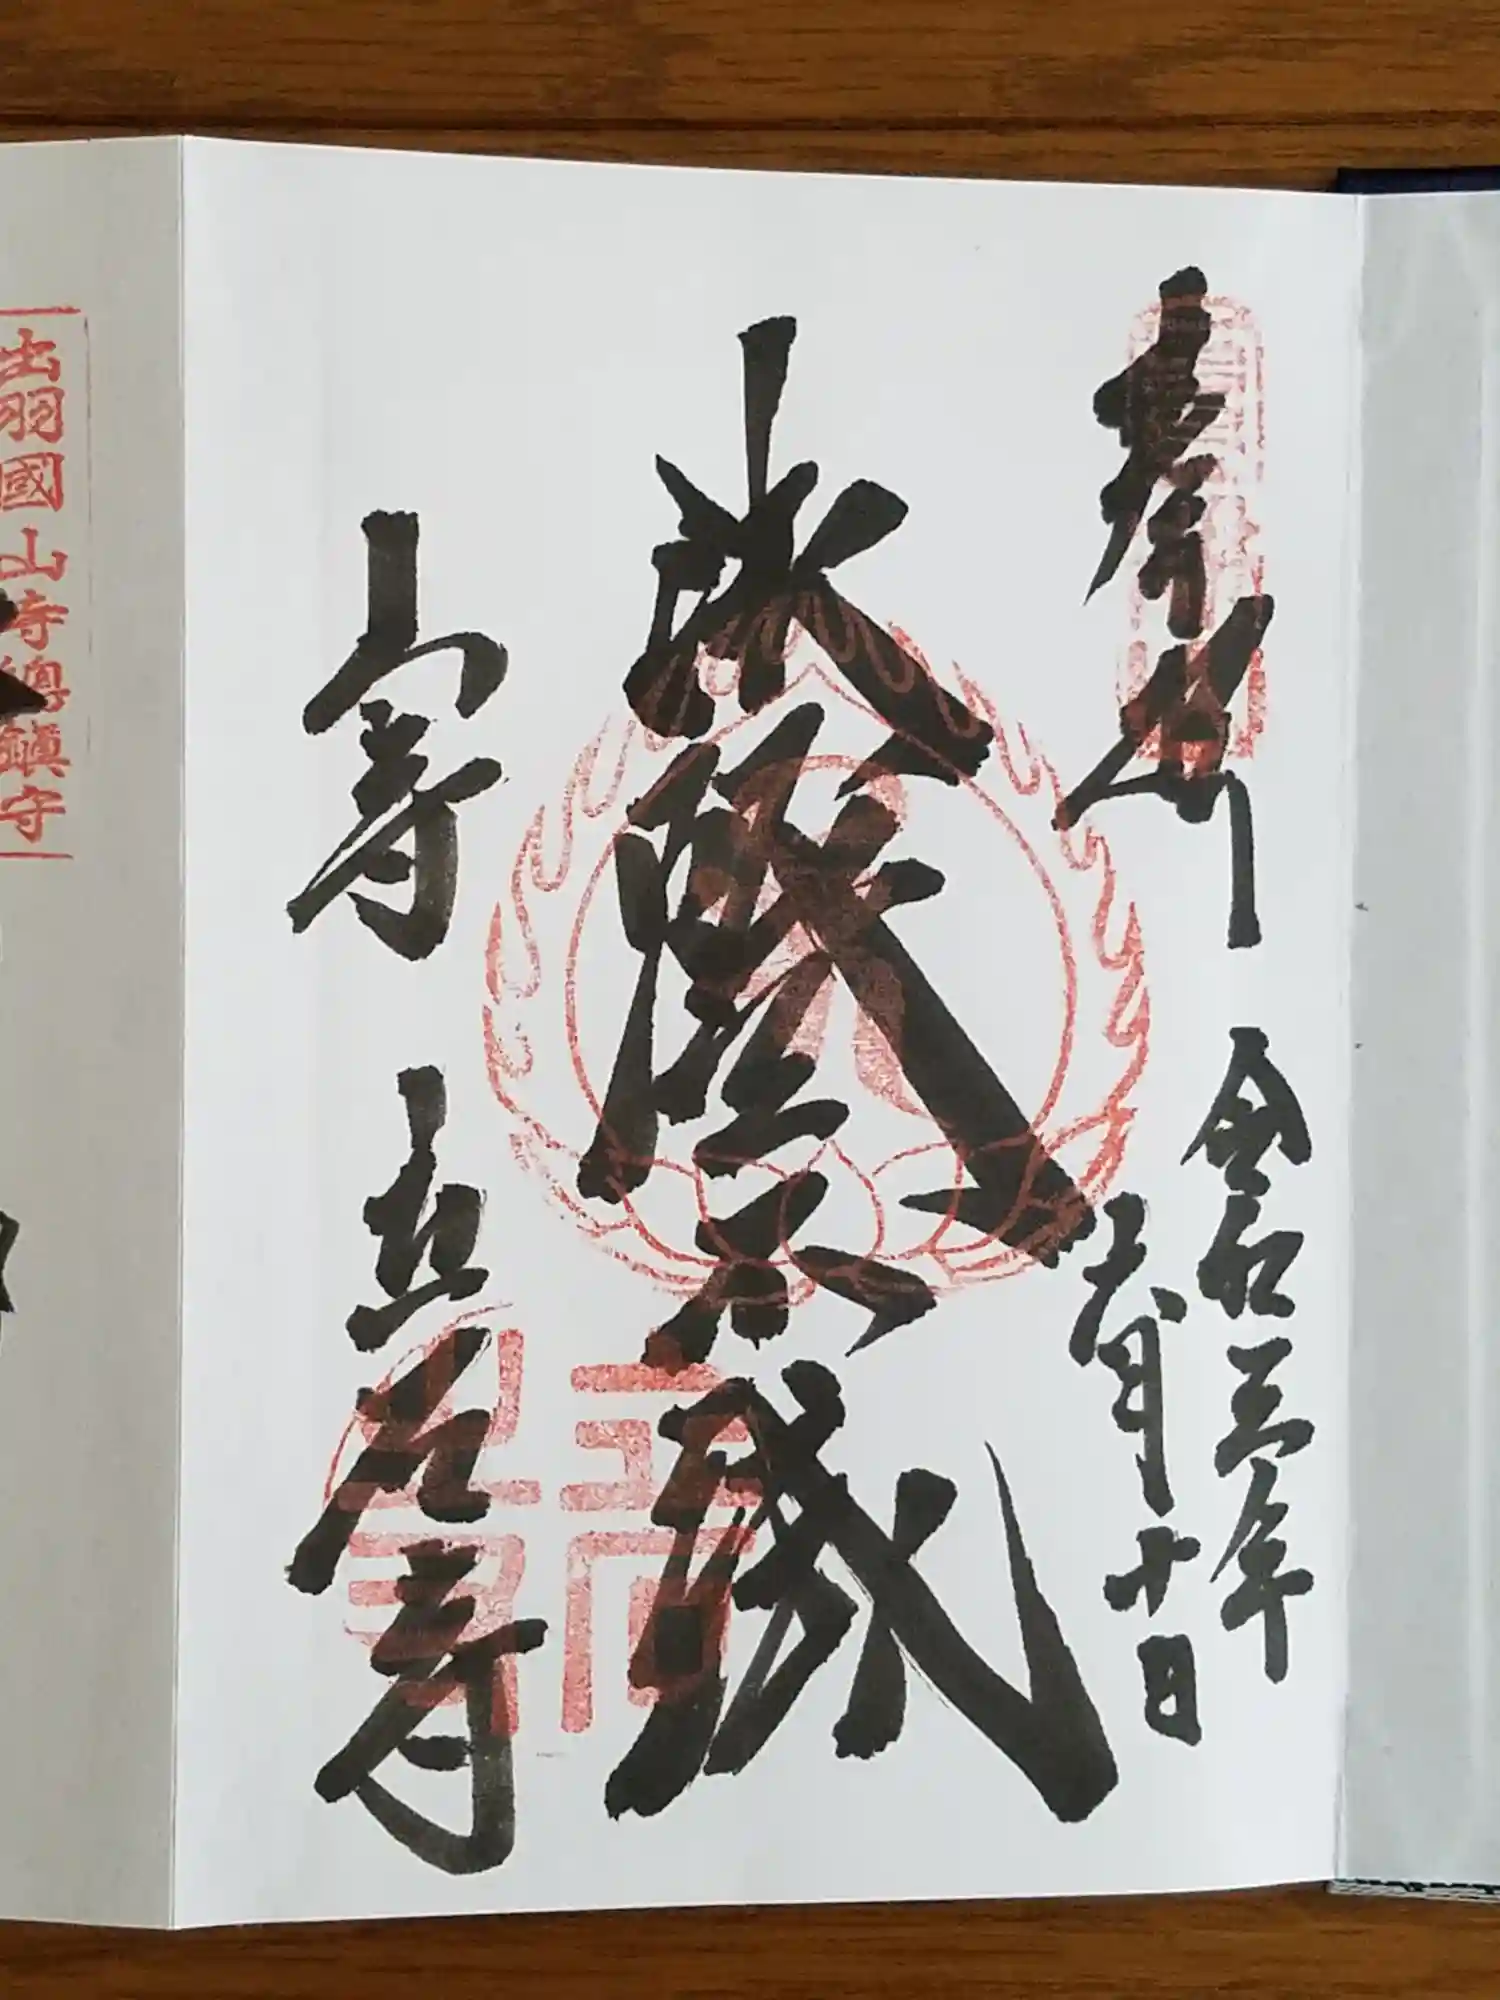 奉拝
令和三年
月十日
法燈不滅
山寺
立石寺
出羽國山寺總鎮守